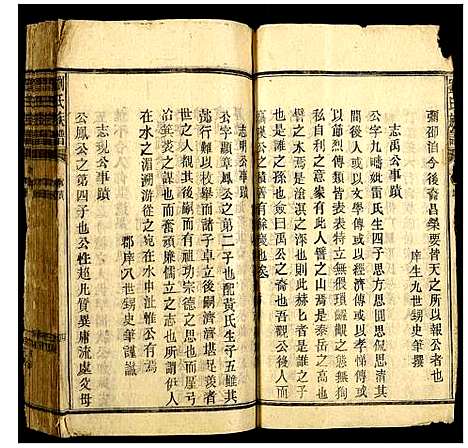 彌卲洎今後裔昌榮要皆天之所以報公者也
庠生九世甥史筆撰
志禹公事蹟
公字九疇妣雷氏生四子思方思圓思忠思信其
間後人或以文學傳或以經濟傳或以孝悌傳或
以節烈傳類皆表表特立無猥瑣齷齪之態無狗
私自利之意象有此人譬之山焉是泰岳之高也
譬之水焉是滄溟之深也則此赫赫
之祖之孫也愈曰禹公之裔也吾觀公後人而
志明公事蹟
公字顯章鳳公之第二子也配黃氏生子五雖其
行難以枚舉而諸子卓立後嗣濟濟堪足羨者
世之人觀其後嗣而有祖功宗德之思而屋弓
冶箕裘之謀也而奮頑廉懦立之志也所謂伊人
在水之湄溯游從之宛在水中沚惟公有焉
郡庠八世甥史筆謹譔
志現公事蹟
公鳳公之第四子也公性超凡質異庸流處父母